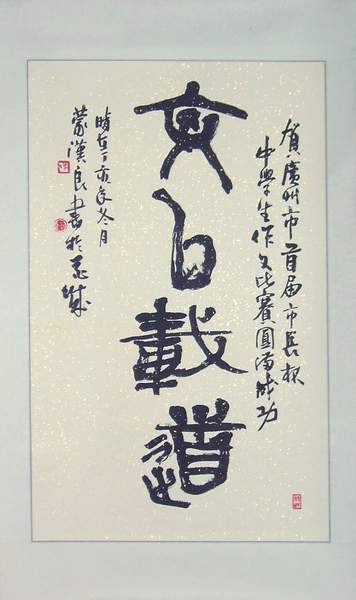 賀廣州市首届市長杯
中學生作文比賽圓滿成功
文以載道
時在丁亥年冬月
蒙漢良書於城